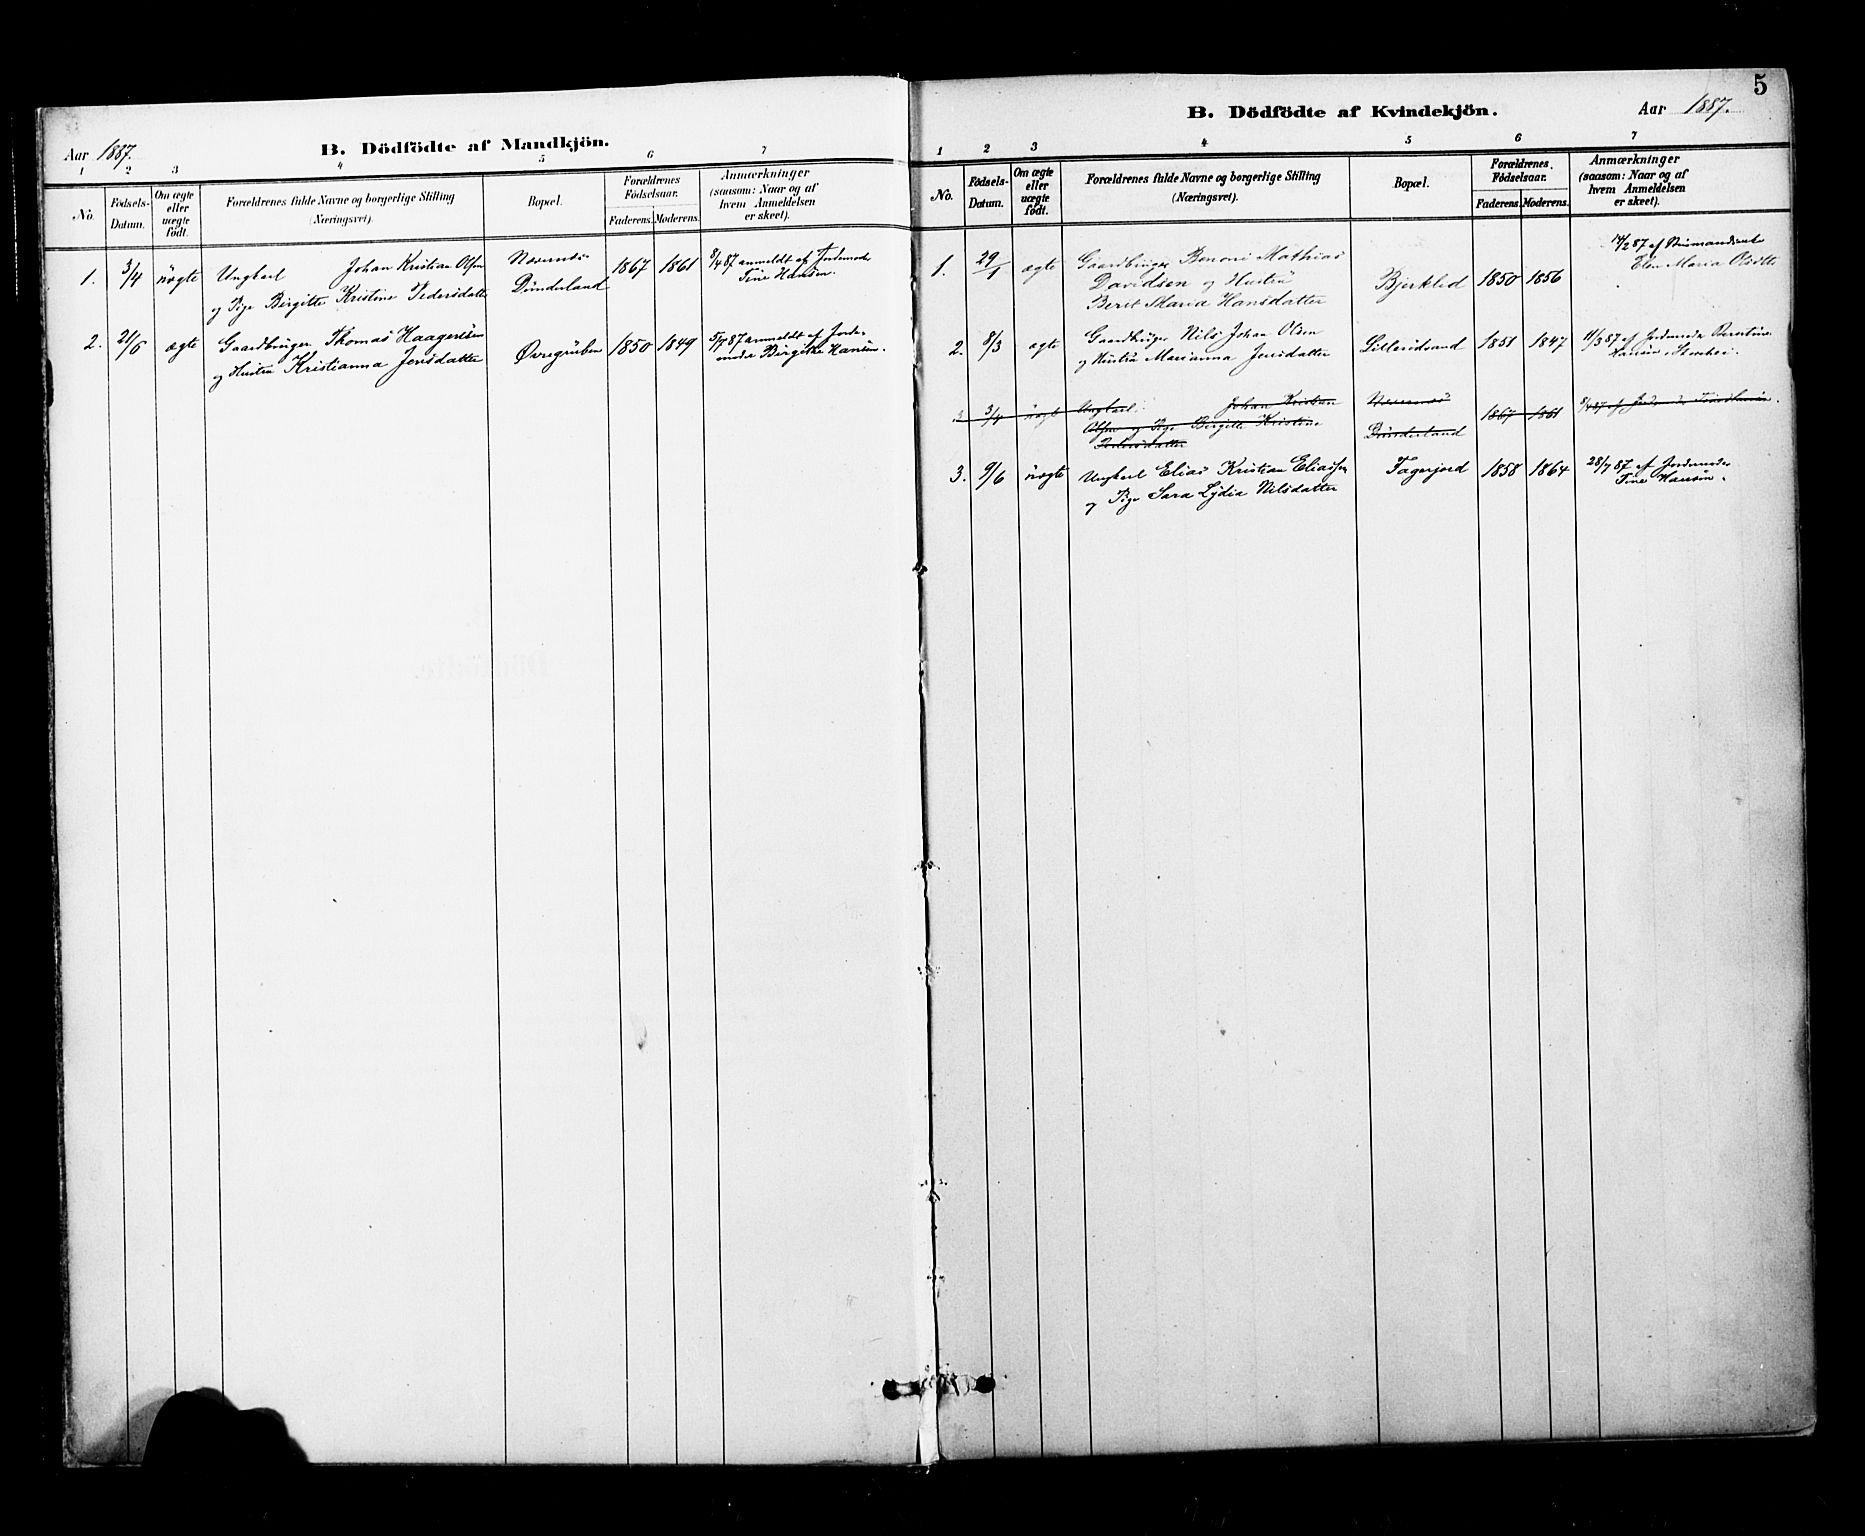 Aar 1887.
B. Dödfödte af Mandkjön.
1 2 3 4 5 6 7
No.
Födsels-
Datum.
Om ægte
eller
uægte
født.
Forældrenes fulde Navne og borgerlige Stilling
(Næringsvei).
Bopæl.
Forældrenes
Födselsaar.
Faderens. Moderens.
Anmærkninger
(saasom: Naar og af
hvem Anmeldelsen
er skeet).
1. 3/4 uægte Ungkarl Johan Kristian Olsen
og Pige Birgitte Kristine Pedersdatter
Dunderland 1867 1861
8/4 87 anmeldt af Jordemode
Tine Hansen.
2. 21/6 ægte Gaardbruger Thomas Haagensen
og Hustru Kristianna Jensdatter
Øvregruben 1850 1849
5/7 87 anmeldt af Jorde-
mode Birgitte Hansen.
5
B. Dödfödte af Kvindekjön.
Aar 1887.
1 2 3 4 5 6 7
No.
Födsels-
Datum.
Om ægte
eller
uægte
födt.
Forældrenes fulde Navne og borgerlige Stilling
(Næringsvei).
Bopæl.
Forældrenes
Födselsaar.
Faderens. Moderens.
Anmærkninger
(saasom: Naar og af
hvem Anmeldelsen
er skeet).
1. 29/1 ægte Gaardbruger Benoni Mathias
Davidsen og Hustru
Berit Maria Hansdatter
Bjerklid 1850 1856
87 af
Elen Maria
2. 8/3 ægte Gaardbruger Nils Johan Olsen
og Hustru Marianna Jensdatter
1851 1847
11/3 87 af Jordemode
Hansen
3. 3/4 uægte Ungkarl Johan Kristian
Olsen og Pige Birgitte Kristine
Pedersdatter
Dunderland 1867 1861
8/4 87 af
3. 9/6 uægte Ungkarl Elias Kristian Eliassen
og Pige Sara Lydia Nilsdatter
Fagerjord 1858 1864
28/7 87 af Jordemode
Tine Hansen.